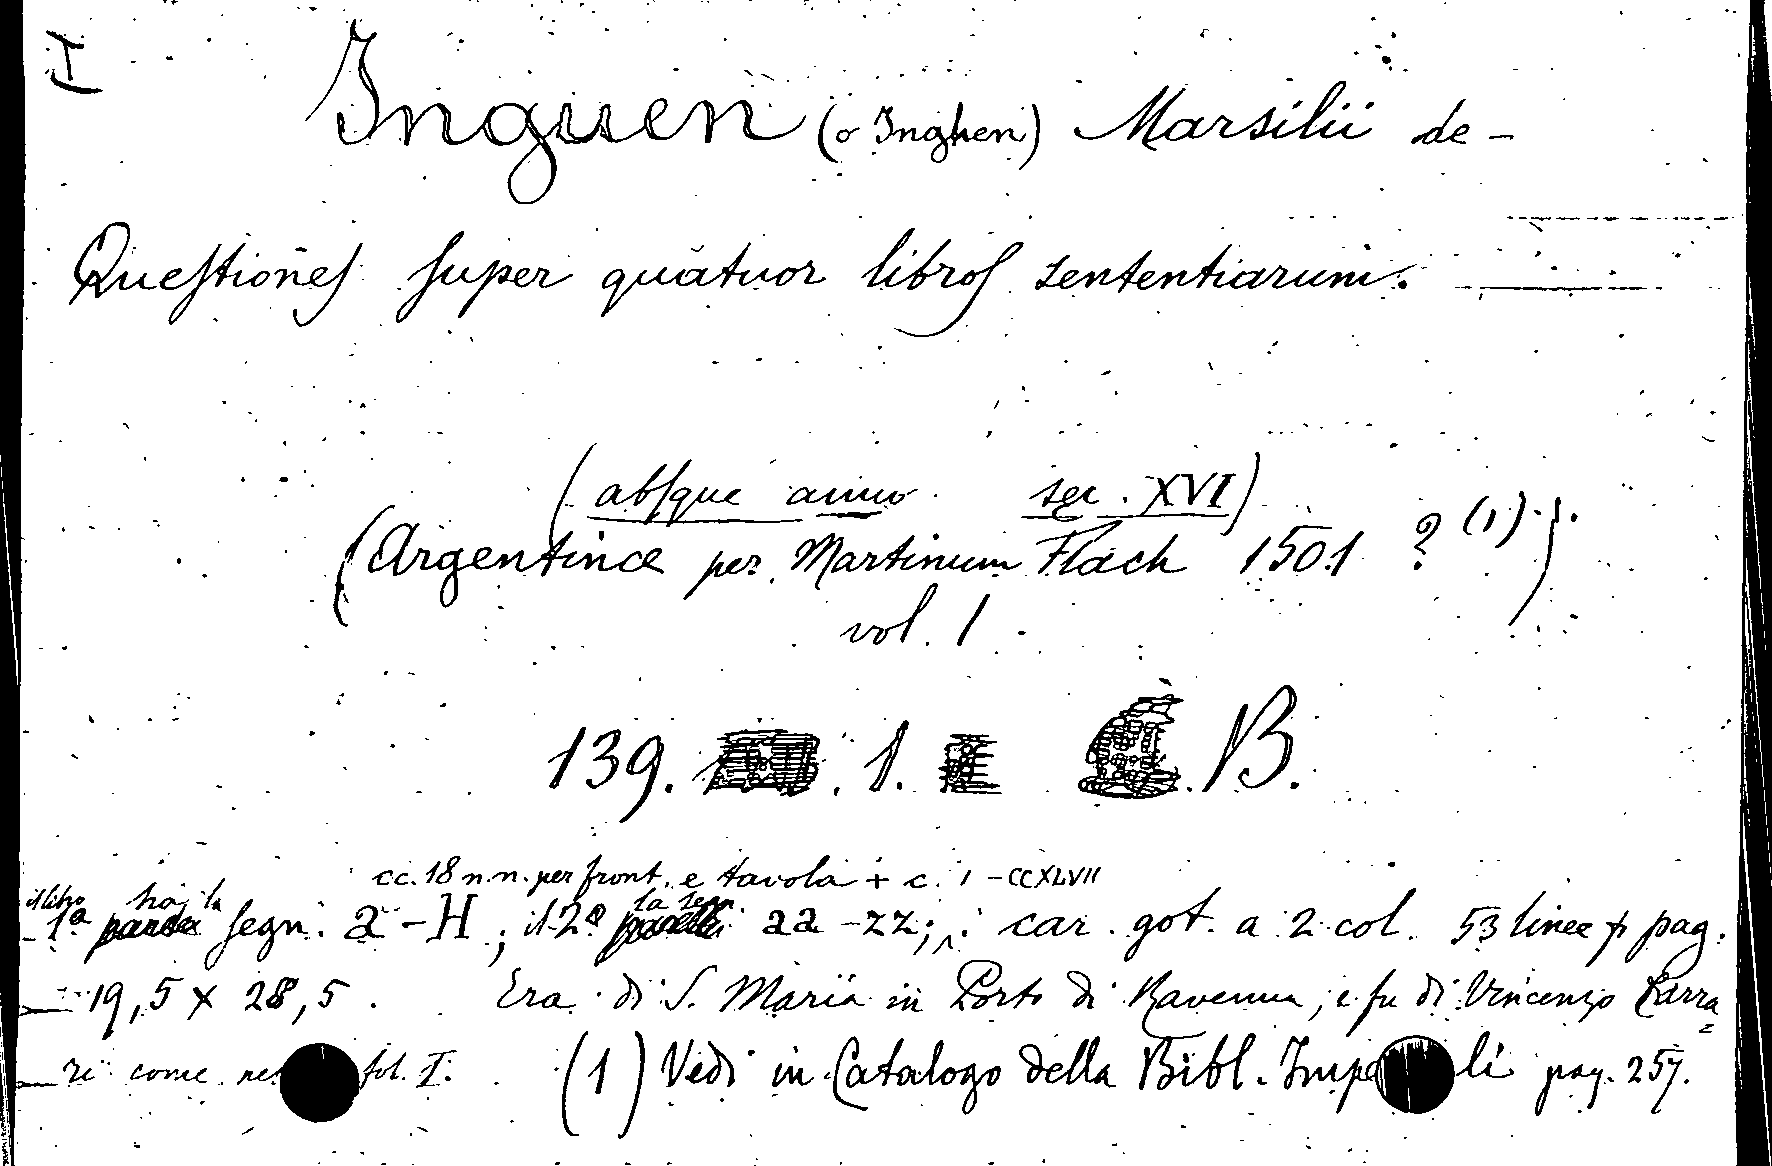 I
Inguen (o Inghen) Marsilii de -
Questiones super quatuor libros sententiarum.
(absque anno sec. XVI)
(Argentinae per Martinum Flach 1501 ? (1)).
vol. 1
139. 1. B.
cc. 18 n.n. per front. e tavola + c. 1 - CCXLVII
il libro ha la la segn.
1ª segn. a - H ; il 2º aa - zz; car. got. a 2 col. 53 linee p pag.
19,5 x 28,5. Era di S. Maria in Porto di Ravenna, e fu di Vincenzo Carra=
ri come nel fol. I. (1) Vedi in Catalogo della Bibl. Impe li pag. 257.